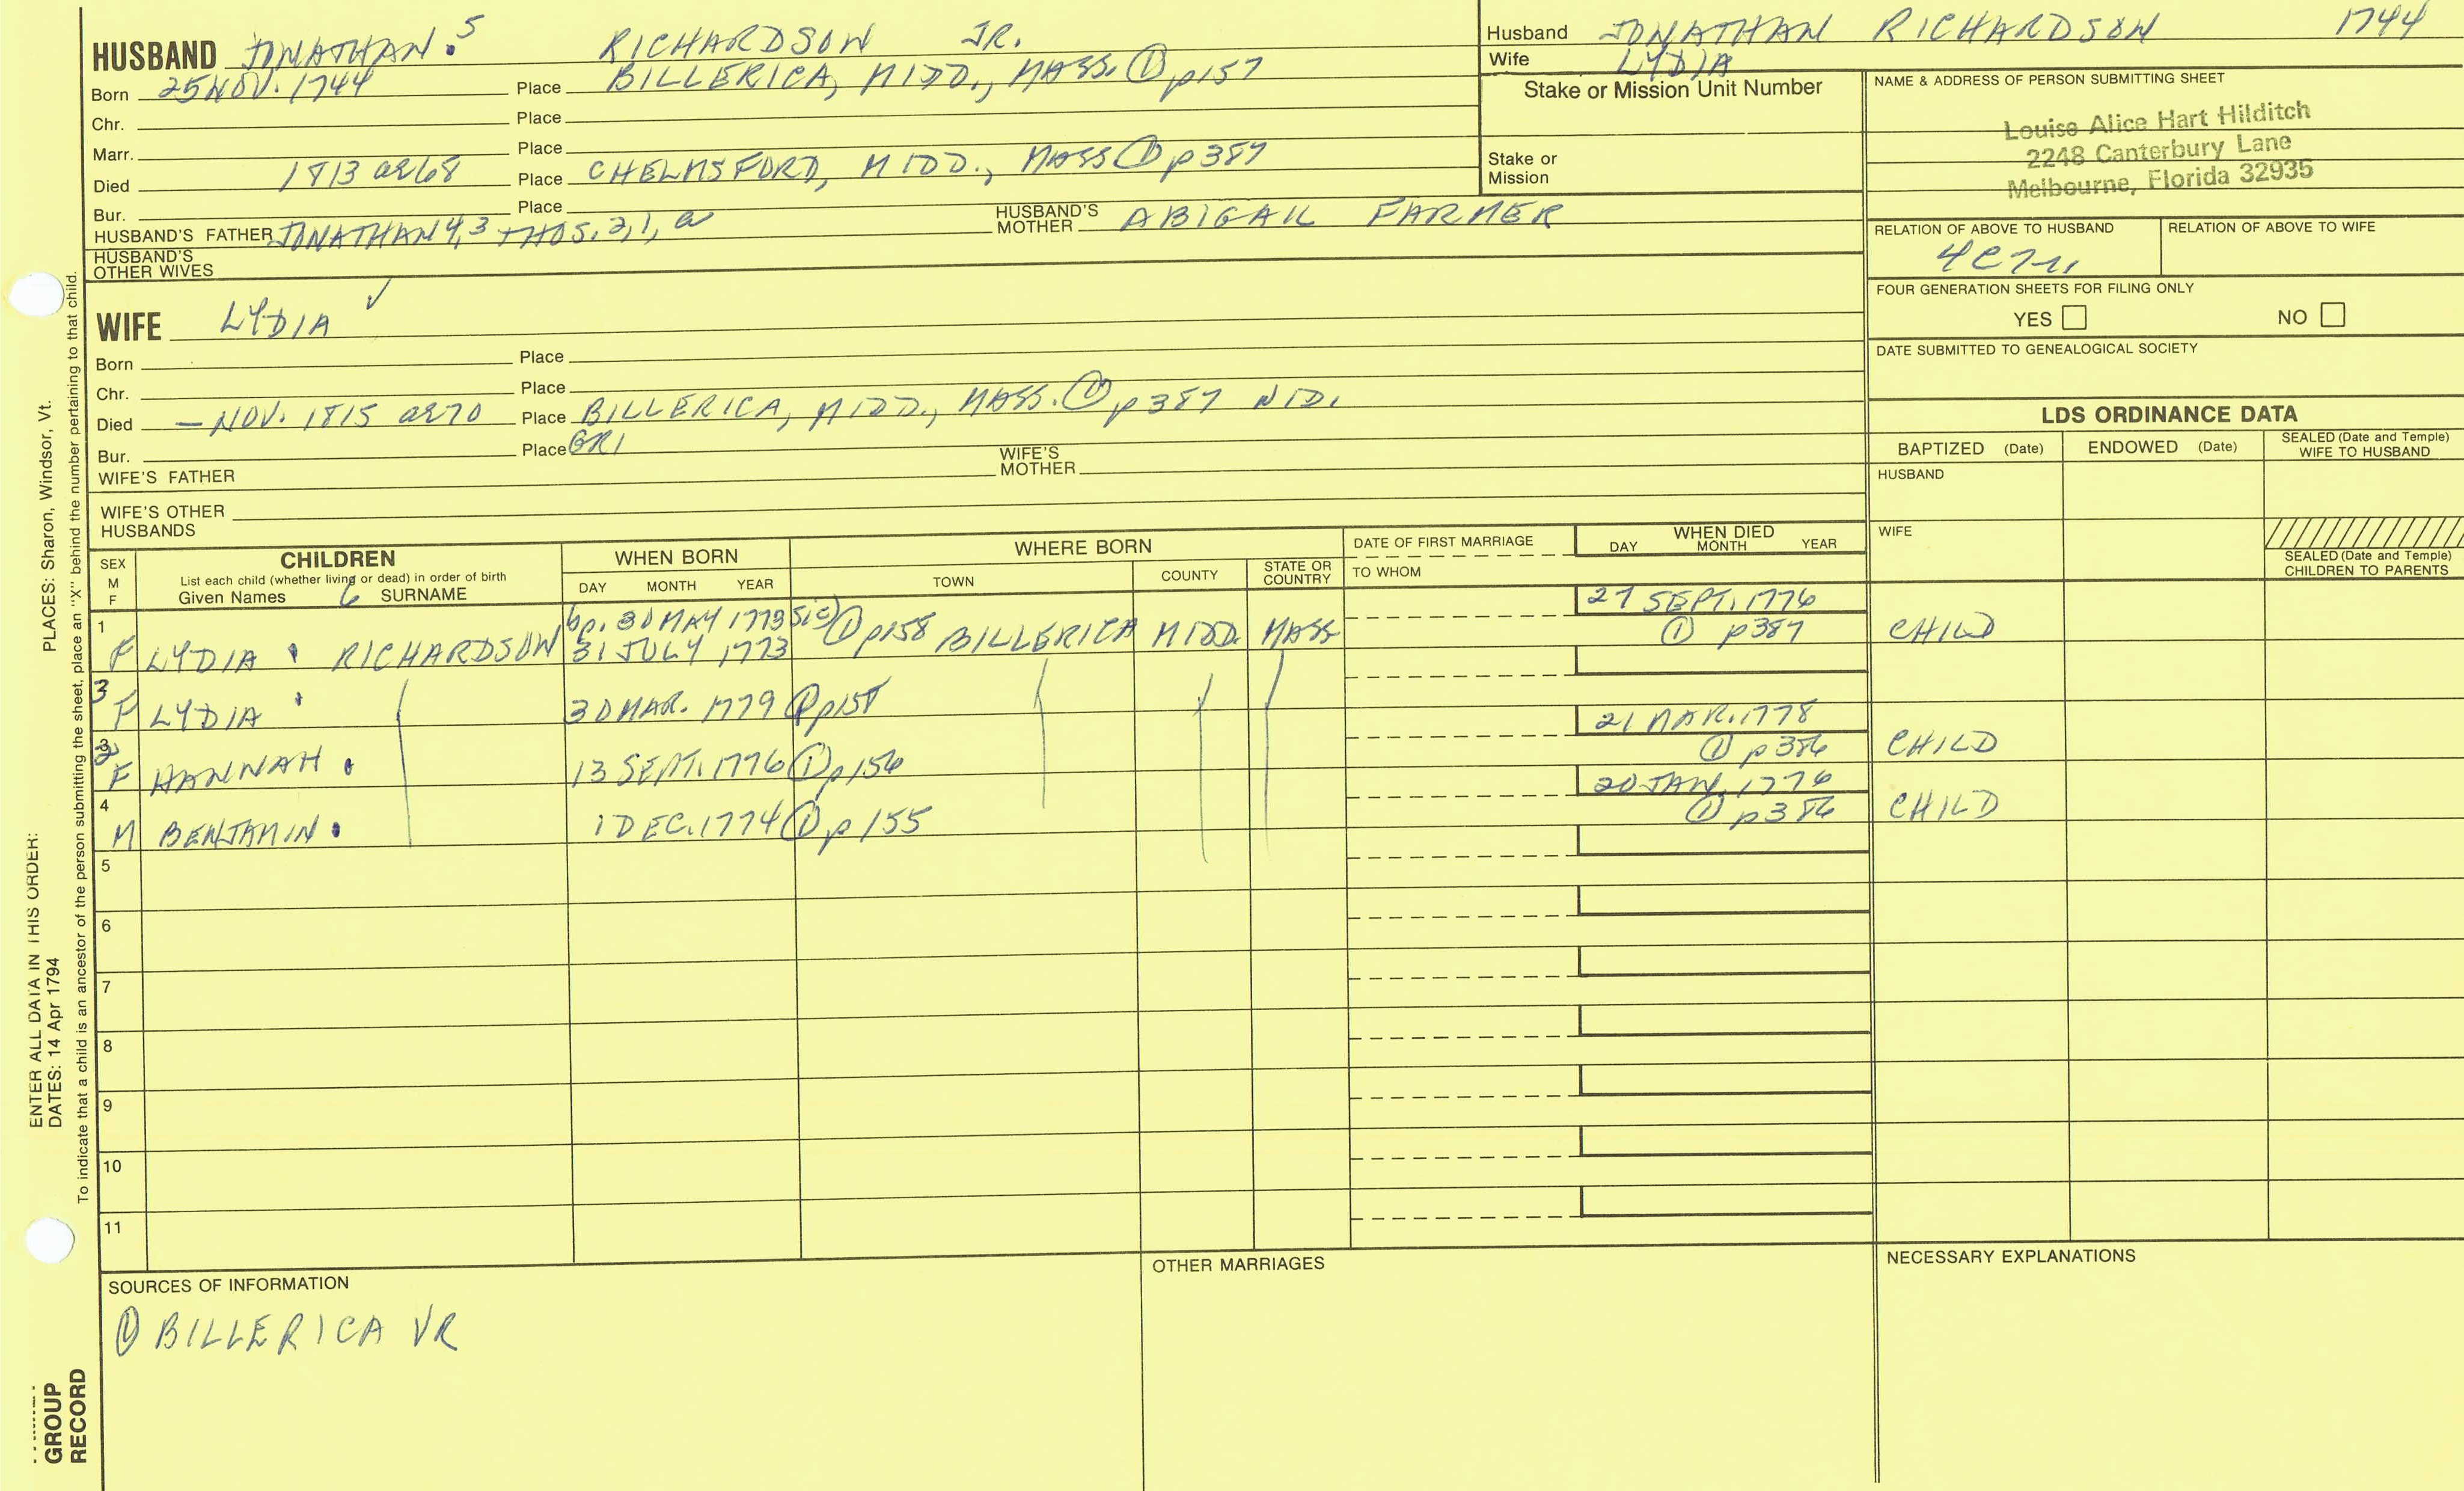 HUSBAND JONATHAN 5 RICHARDSON JR.
Born 25 NOV. 1744 Place BILLERICA, MIDD., MASS. ① p157
Chr. Place
Marr. Place
Died 1813 ae 68 Place CHELMSFORD, MIDD., MASS ① p387
Bur. Place
HUSBAND'S FATHER JONATHAN 4, 3 THOS. 2, 1, HUSBAND'S MOTHER ABIGAIL FARMER
HUSBAND'S OTHER WIVES
Husband JONATHAN RICHARDSON 1744
Wife LYDIA
Stake or Mission Unit Number
Stake or Mission
NAME & ADDRESS OF PERSON SUBMITTING SHEET
Louise Alice Hart Hilditch
2248 Canterbury Lane
Melbourne, Florida 32935
RELATION OF ABOVE TO HUSBAND
RELATION OF ABOVE TO WIFE
FOUR GENERATION SHEETS FOR FILING ONLY
YES NO
DATE SUBMITTED TO GENEALOGICAL SOCIETY
WIFE LYDIA ✓
Born Place
Chr. Place
Died — NOV. 1815 ae 70 Place BILLERICA, MIDD., MASS. ① p387 WID.
Bur. Place GR1
WIFE'S FATHER WIFE'S MOTHER
WIFE'S OTHER HUSBANDS
LDS ORDINANCE DATA
BAPTIZED (Date) ENDOWED (Date) SEALED (Date and Temple) WIFE TO HUSBAND
HUSBAND
WIFE
SEALED (Date and Temple) CHILDREN TO PARENTS
SEX M F
CHILDREN
List each child (whether living or dead) in order of birth
Given Names SURNAME
WHEN BORN
DAY MONTH YEAR
WHERE BORN
TOWN COUNTY STATE OR COUNTRY
DATE OF FIRST MARRIAGE
TO WHOM
WHEN DIED
DAY MONTH YEAR
1 bp. 30 MAY 1773 sic) 27 SEPT. 1776
F LYDIA RICHARDSON 31 JULY 1773 ① p158 BILLERICA MIDD. MASS ① p387 CHILD
3
F LYDIA 30 MAR. 1779 ① p158
2 21 MAR. 1778
F HANNAH 13 SEPT. 1776 ① p156 ① p386 CHILD
4 20 JAN. 1776
M BENJAMIN 1 DEC. 1774 ① p155 ① p386 CHILD
5
6
7
8
9
10
11
SOURCES OF INFORMATION
① BILLERICA VR
OTHER MARRIAGES
NECESSARY EXPLANATIONS
ENTER ALL DATA IN THIS ORDER:
DATES: 14 Apr 1794
PLACES: Sharon, Windsor, Vt.
To indicate that a child is an ancestor of the person submitting the sheet, place an "X" behind the number pertaining to that child.
GROUP
RECORD